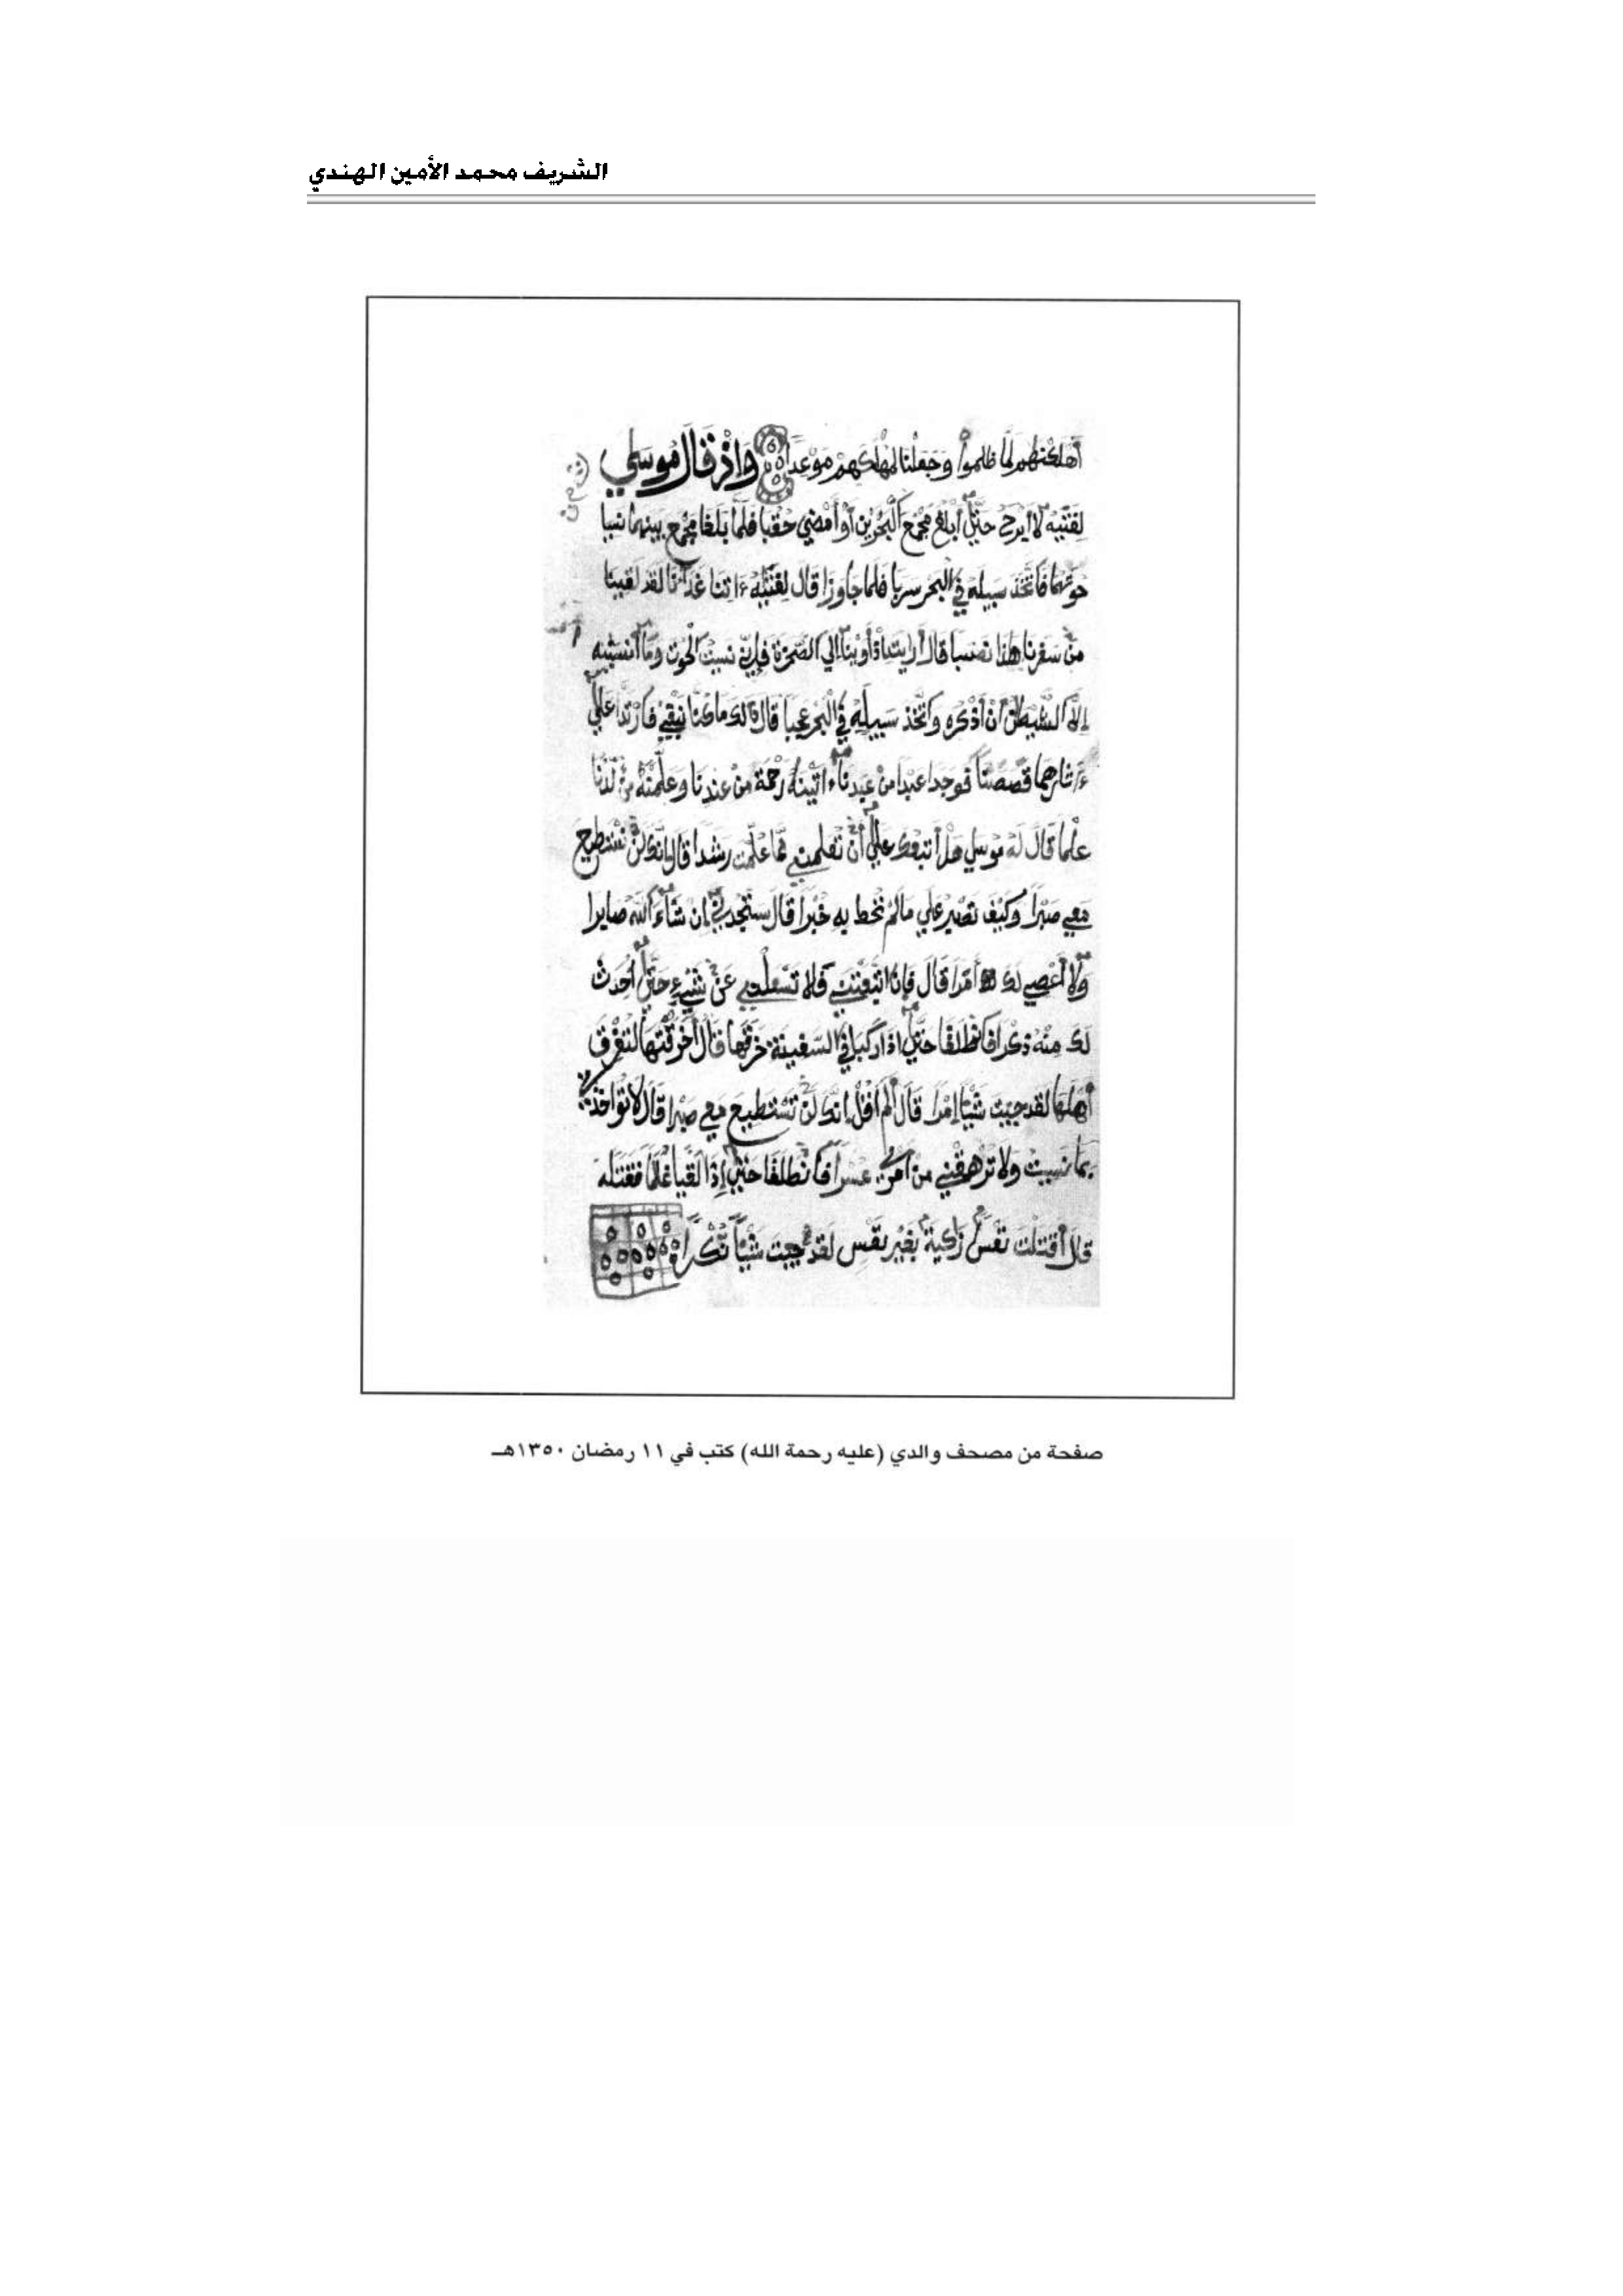 الشريف محمد الأمين الهندي
أهلكنهم لما ظلموا وجعلنا لمهلكهم موعدا وإذ قال موسي
لفتيه لا أبرح حتي أبلغ مجمع البحرين أو أمضي حقبا فلما بلغا مجمع بينهما نسيا
حوتهما فاتخذ سبيله في البحر سربا فلما جاوزا قال لفتيه ءاتنا غداءنا لقد لقينا
من سفرنا هذا نصبا قال أرايت إذ أوينا إلي الصخرة فإني نسيت الحوت وما أنسينيه
إلا الشيطن أن أذكره واتخذ سبيله في البحر عجبا قال ذلك ما كنا نبغي فارتدا علي
ءاثارهما قصصا فوجدا عبدا من عبدنا ءاتينه رحمة من عندنا وعلمنه من لدنا
علما قال له موسي هل أتبعك علي أن تعلمني مما علمت رشدا قال إنك لن تستطيع
معي صبرا وكيف تصبر علي ما لم تحط به خبرا قال ستجدني إن شاء الله صابرا
ولا أعصي لك أمرا قال فإن اتبعتني فلا تسءلني عن شيء حتي أحدث
لك منه ذكرا فانطلقا حتي إذا ركبا في السفينة خرقها قال أخرقتها لتغرق
أهلها لقد جيت شيئا إمرا قال ألم أقل إنك لن تستطيع معي صبرا قال لا تواخذني
بما نسيت ولا ترهقني من أمري عسرا فانطلقا حتي إذا لقيا غلما فقتله
قال أقتلت نفسا زكية بغير نفس لقد جيت شيئا نكرا
صفحة من مصحف والدي (عليه رحمة الله) كتب في ١١ رمضان ١٣٥٠هـ